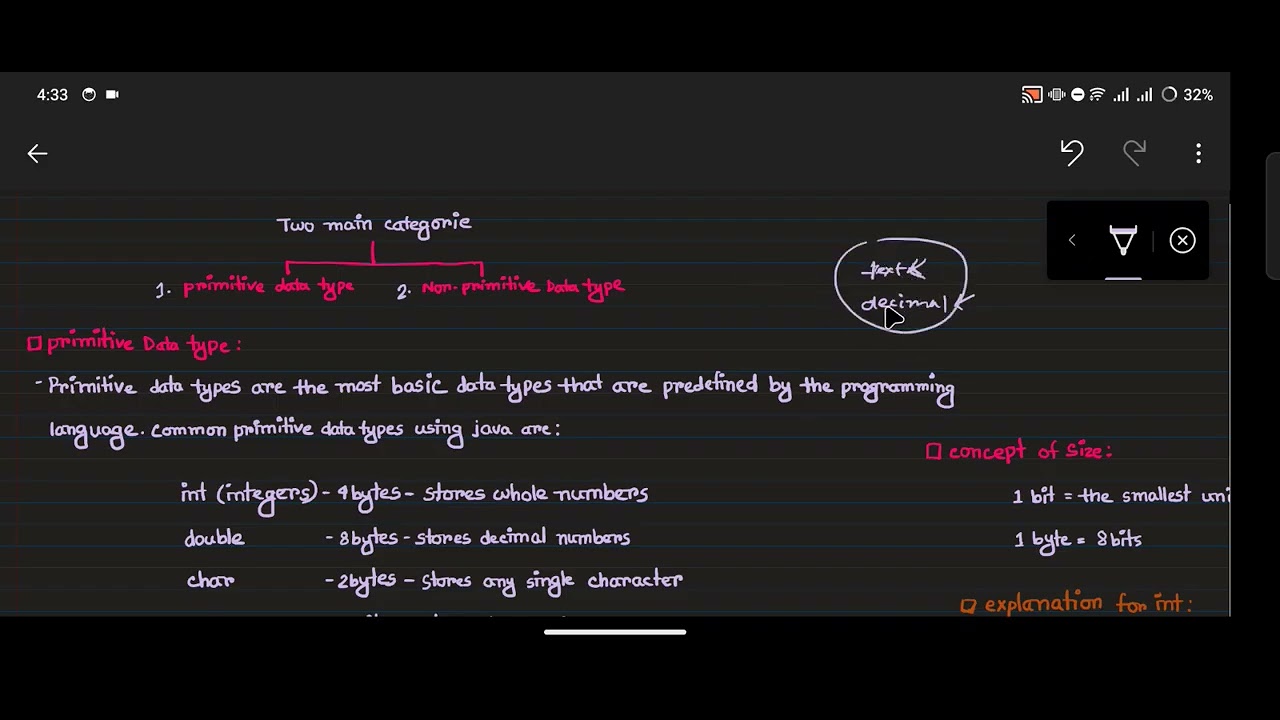 4:33
32%
Two main categorie
1. primitive data type 2. Non-primitive Data type
text
decimal
primitive Data type:
- Primitive data types are the most basic data types that are predefined by the programming
language. common primitive data types using java are:
int (integers) - 4bytes - stores whole numbers
double - 8bytes - stores decimal numbers
char - 2bytes - stores any single character
concept of size:
1 bit = the smallest uni
1 byte = 8bits
explanation for int: